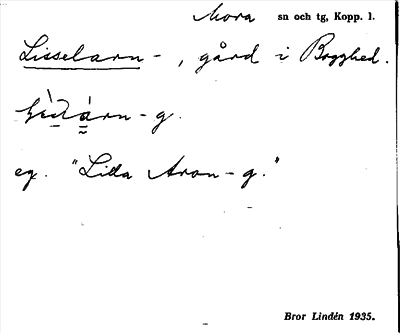 Mora sn och tg, Kopp. l.
Lisselarn-, gård i Bogghed.
-g.
eg. "Lilla Aron-g."
Bror Lindén 1935.